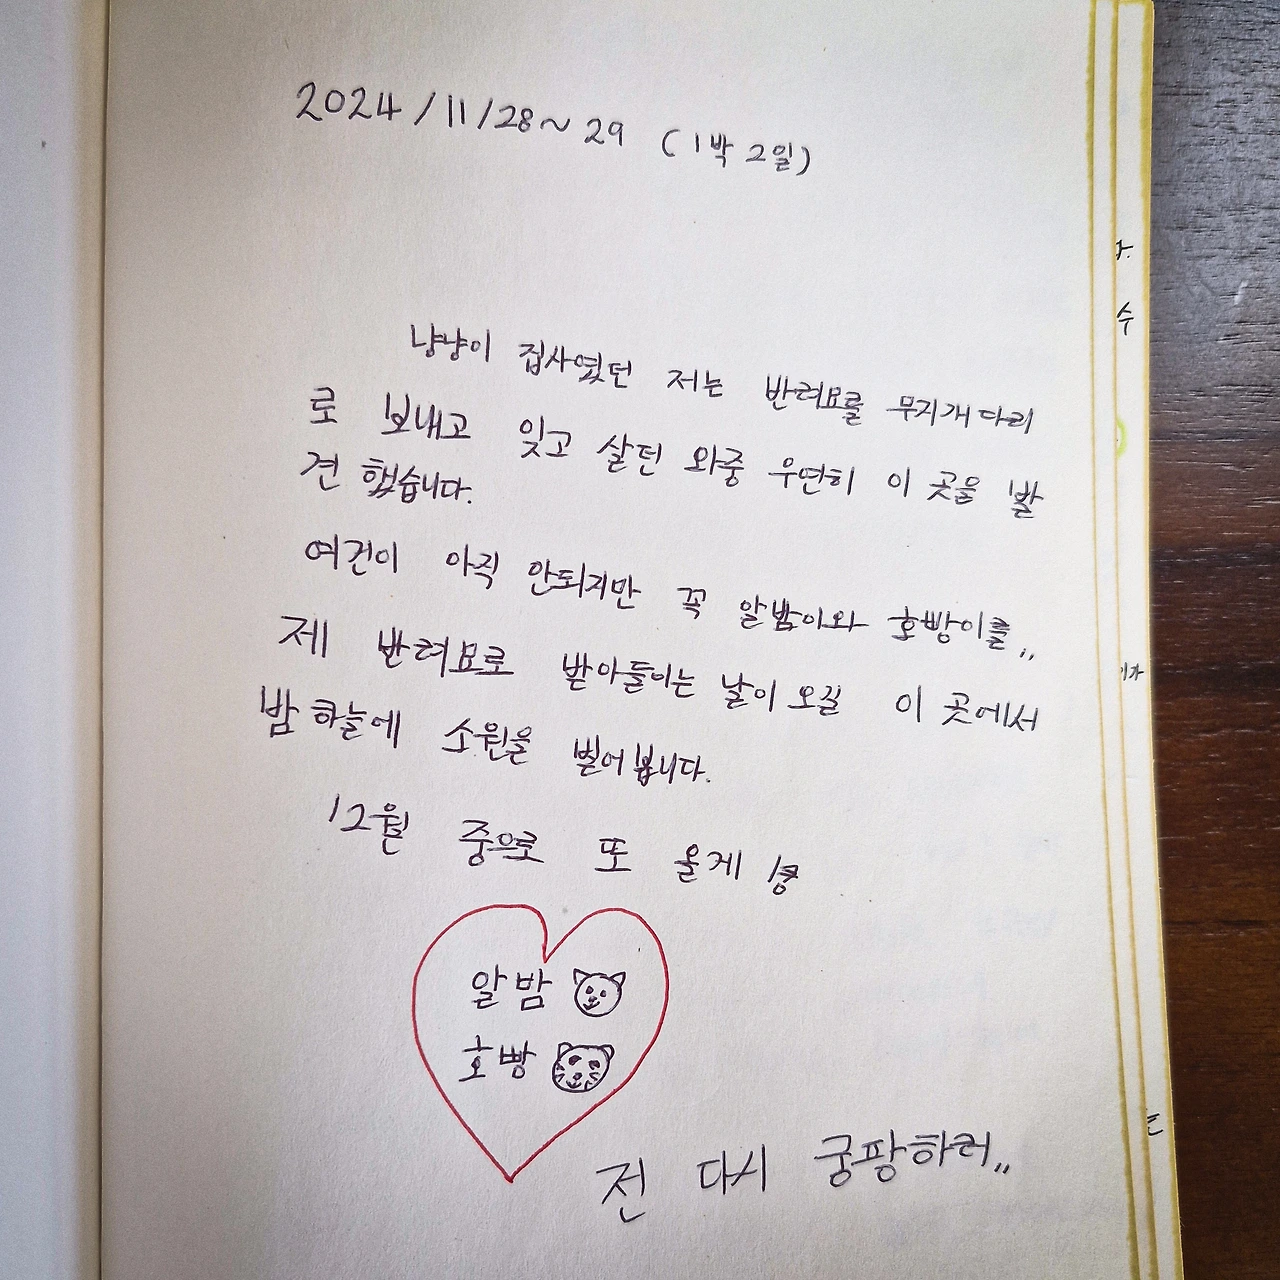 2024/11/28~29 (1박 2일)
냥냥이 집사였던 저는 반려묘를 무지개다리
로 보내고 잊고 살던 와중 우연히 이 곳을 발
견 했습니다.
여건이 아직 안되지만 꼭 알밤이와 호빵이를,,
제 반려묘로 받아들이는 날이 오길 이 곳에서
밤하늘에 소원을 빌어봅니다.
12월 중으로 또 올게
알밤
호빵
전 다시 궁팡하러,,
수